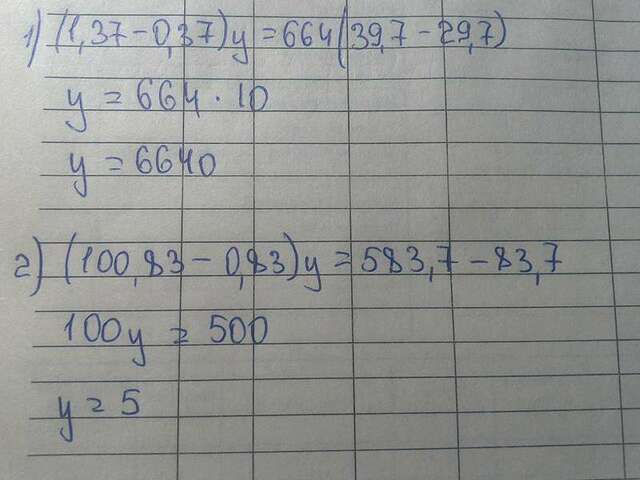 1) (1,37-0,37)y = 664(39,7-29,7)
y = 664 · 10
y = 6640
2) (100,83 - 0,83)y = 583,7 - 83,7
100y = 500
y = 5